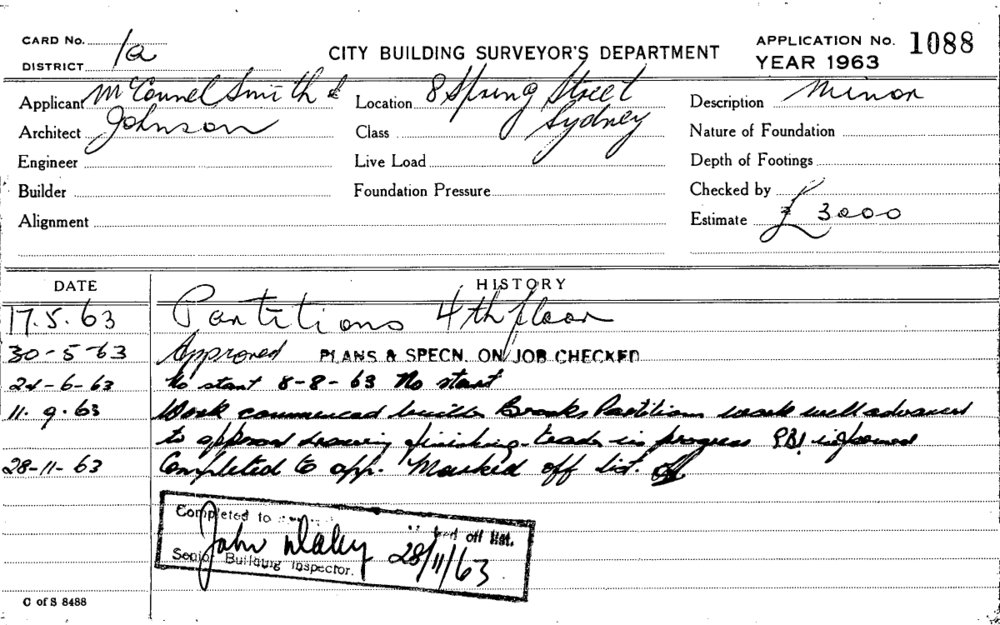 CARD No. 1a
DISTRICT
CITY BUILDING SURVEYOR'S DEPARTMENT
APPLICATION No. 1088
YEAR 1963
Applicant McConnel Smith &
Architect Johnson
Engineer
Builder
Alignment
Location 8 Spring Street
Sydney
Class
Live Load
Foundation Pressure
Description Minor
Nature of Foundation
Depth of Footings
Checked by
Estimate £ 3000
DATE HISTORY
17.5.63 Partitions 4th floor
30-5-63 Approved PLANS & SPECN. ON JOB CHECKED
24-6-63 No start 8-8-63 No start
11.9.63 Work commenced builder Brooks Partitions work well advanced
to approved drawing finishing trades in progress P.B.I. informed
28-11-63 Completed to app. Marked off list.
Completed to
off list.
John Daley 28/11/63
Senior Building Inspector.
C of S 8488